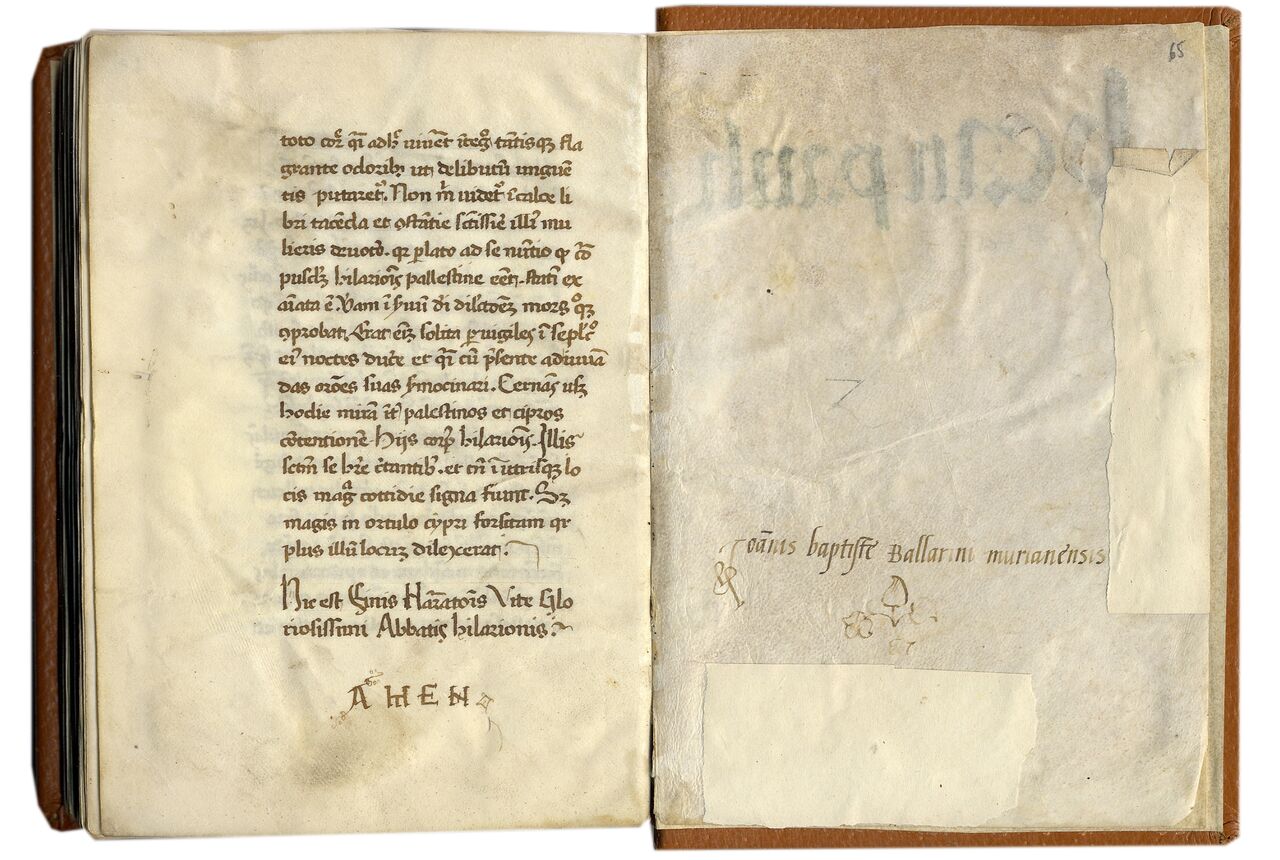 toto cor̃ qͣi adhͨ uiuẽt ĩteg̊ tãtisqꝫ fla
grante odoribꝫ ut delibutũ unguẽ
tis putaret᷑. Non m̃ uidet᷑ ĩ calce li
bri tacẽda et ꝯstãtie sc̃issĩe illĩ mu
lieris
plato ad se nũtio
pusclꝫ hilariõis pallestine eẽt. statĩ ex
aĩata ẽ. morꝫ qͦꝫ
ꝯprobat. Erat eĩꝫ solita puigiles ĩ seplcͦ
eĩ noctes duc̃e et qͣi cũ p̃sente adiuuã
das orões suas ẜmocinari. Cernas usꝫ
hodie mirã ĩt̃ palestinos et cipros
cõtentionẽ hijs corpꝰ hilariõis. Illis
sc̃tm se hr̃e c̃tantibꝰ. et tñ ĩ utrisqꝫ lo
cis magͣ cottidie signa fiunt. Sꝫ
magis in ortulo cypri forsitam qr
plus illũ locuꝫ dilexerat.
Hic est finis Narratõis Vite Glo
riosissimi Abbatis hilarionis.
AMEN
65
Ioãnis baptiste Ballarini murianensis